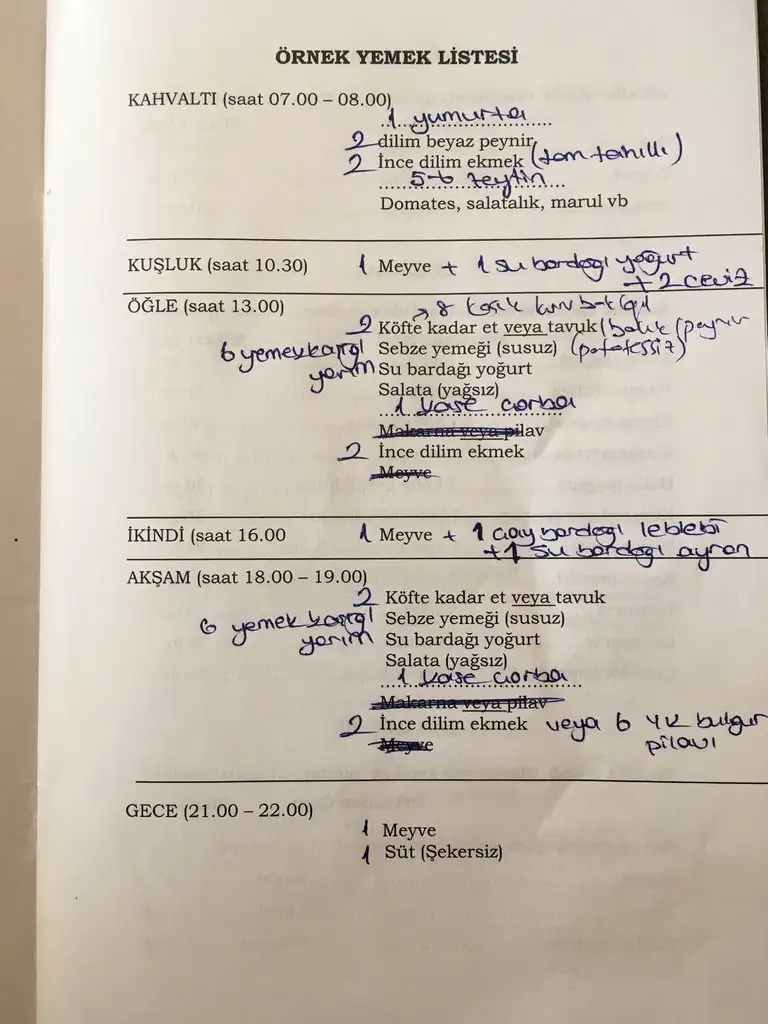 ÖRNEK YEMEK LİSTESİ
KAHVALTI (saat 07.00 – 08.00)
1 yumurta
2 dilim beyaz peynir
2 İnce dilim ekmek (tam tahıllı)
5-6 zeytin
Domates, salatalık, marul vb
KUŞLUK (saat 10.30) 1 Meyve + 1 su bardağı yoğurt
+ 2 ceviz
ÖĞLE (saat 13.00) → 8 kaşık kuru bakgil
2 Köfte kadar et veya tavuk (balık (peynir
6 yemek kaşığı Sebze yemeği (susuz) (patatessiz)
yarım Su bardağı yoğurt
Salata (yağsız)
1 kase çorba
Makarna veya pilav
2 İnce dilim ekmek
Meyve
İKİNDİ (saat 16.00 1 Meyve + 1 çay bardağı leblebi
+ 1 su bardağı ayran
AKŞAM (saat 18.00 – 19.00)
2 Köfte kadar et veya tavuk
6 yemek kaşığı Sebze yemeği (susuz)
yarım Su bardağı yoğurt
Salata (yağsız)
1 kase çorba
Makarna veya pilav
2 İnce dilim ekmek veya 6 yk bulgur
pilavı
Meyve
GECE (21.00 – 22.00)
1 Meyve
1 Süt (Şekersiz)